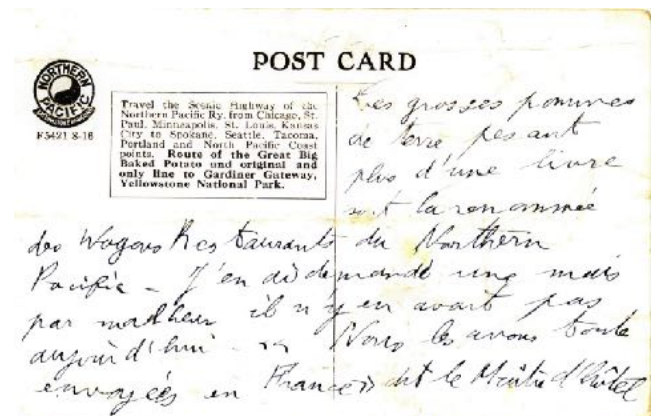 POST CARD
NORTHERN
PACIFIC
F5421 8-16
Travel the Scenic Highway of the
Northern Pacific Ry. from Chicago, St.
Paul, Minneapolis, St. Louis, Kansas
City to Spokane, Seattle, Tacoma,
Portland and North Pacific Coast
points. Route of the Great Big
Baked Potato and original and
only line to Gardiner Gateway,
Yellowstone National Park.
Les grosses pommes
de terre pesant
plus d'une livre
sont la renommée
des Wagons Restaurants du Northern
Pacific - J'en ai demandé une mais
par malheur il n'y en avait pas
aujourd'hui - Nous les avons toute
envoyées en France dit le Maitre d'hôtel